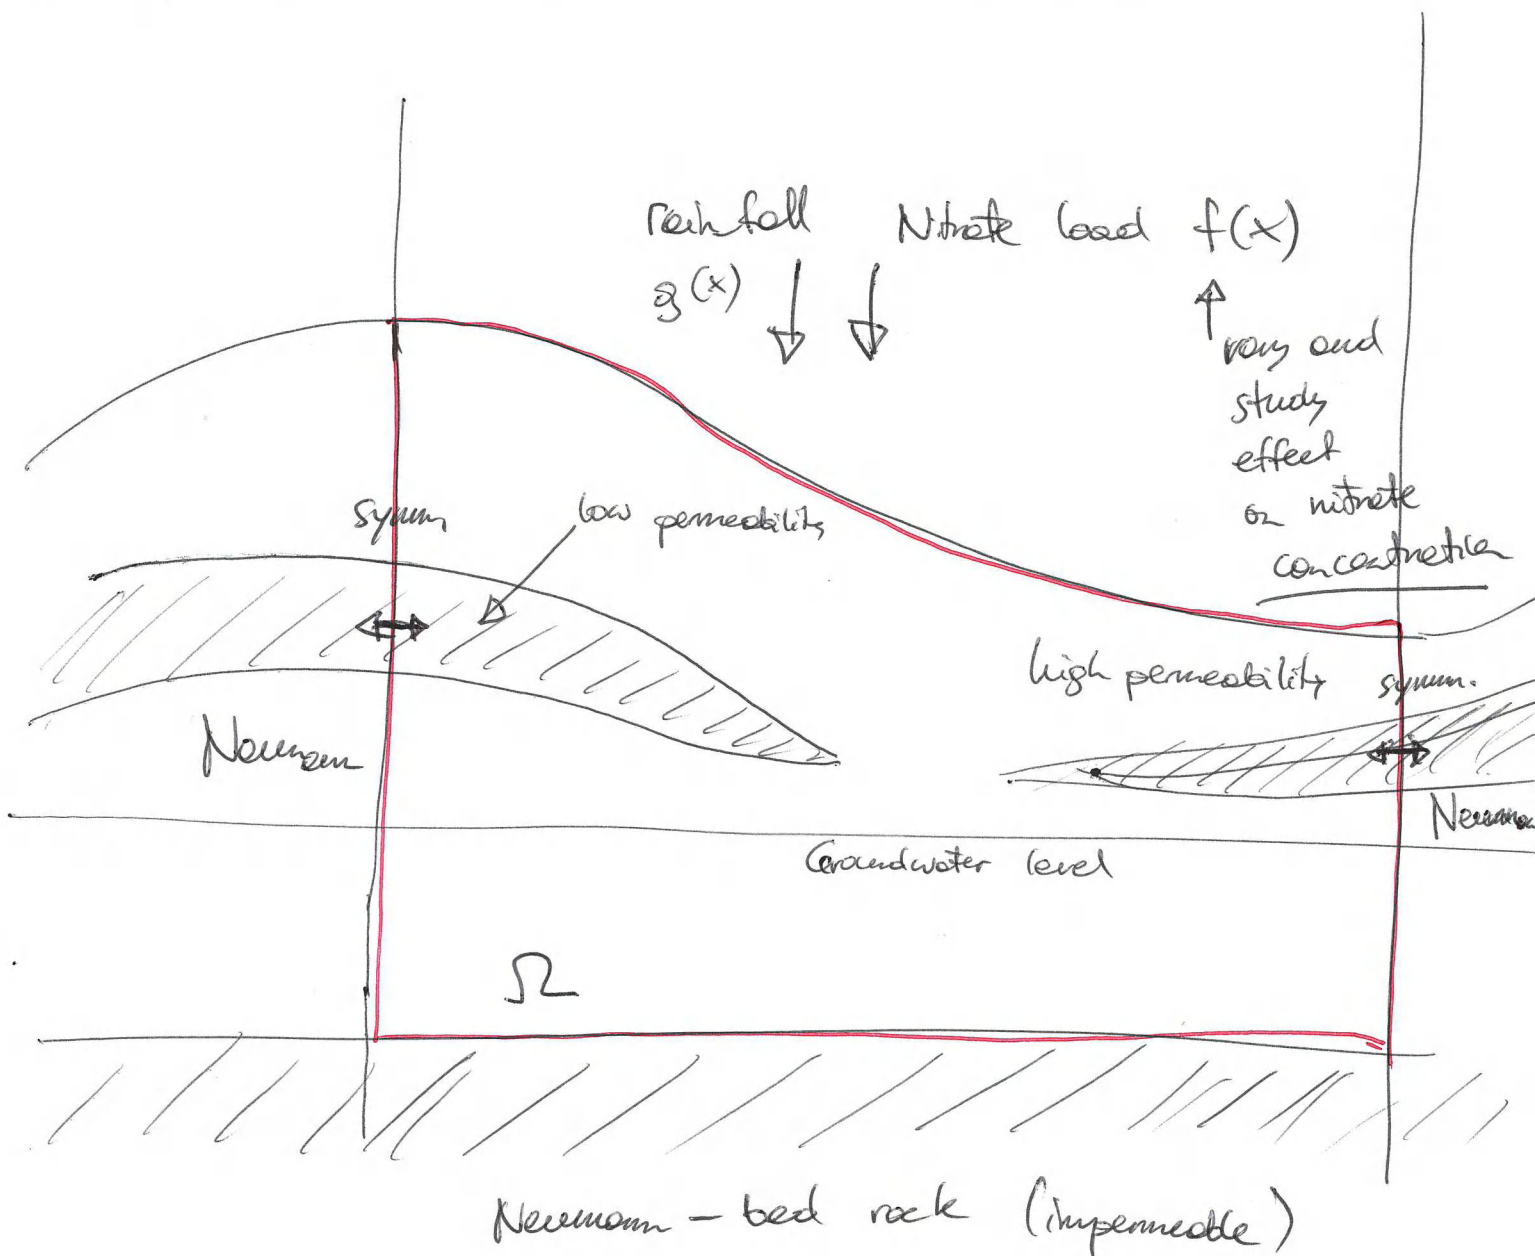 rainfall
g(x)
Nitrate load f(x)
vary and
study
effect
on nitrate
concentration
symm.
low permeability
high permeability
symm.
Neumann
Neumann
Groundwater level
Ω
Neumann – bed rock (impermeable)